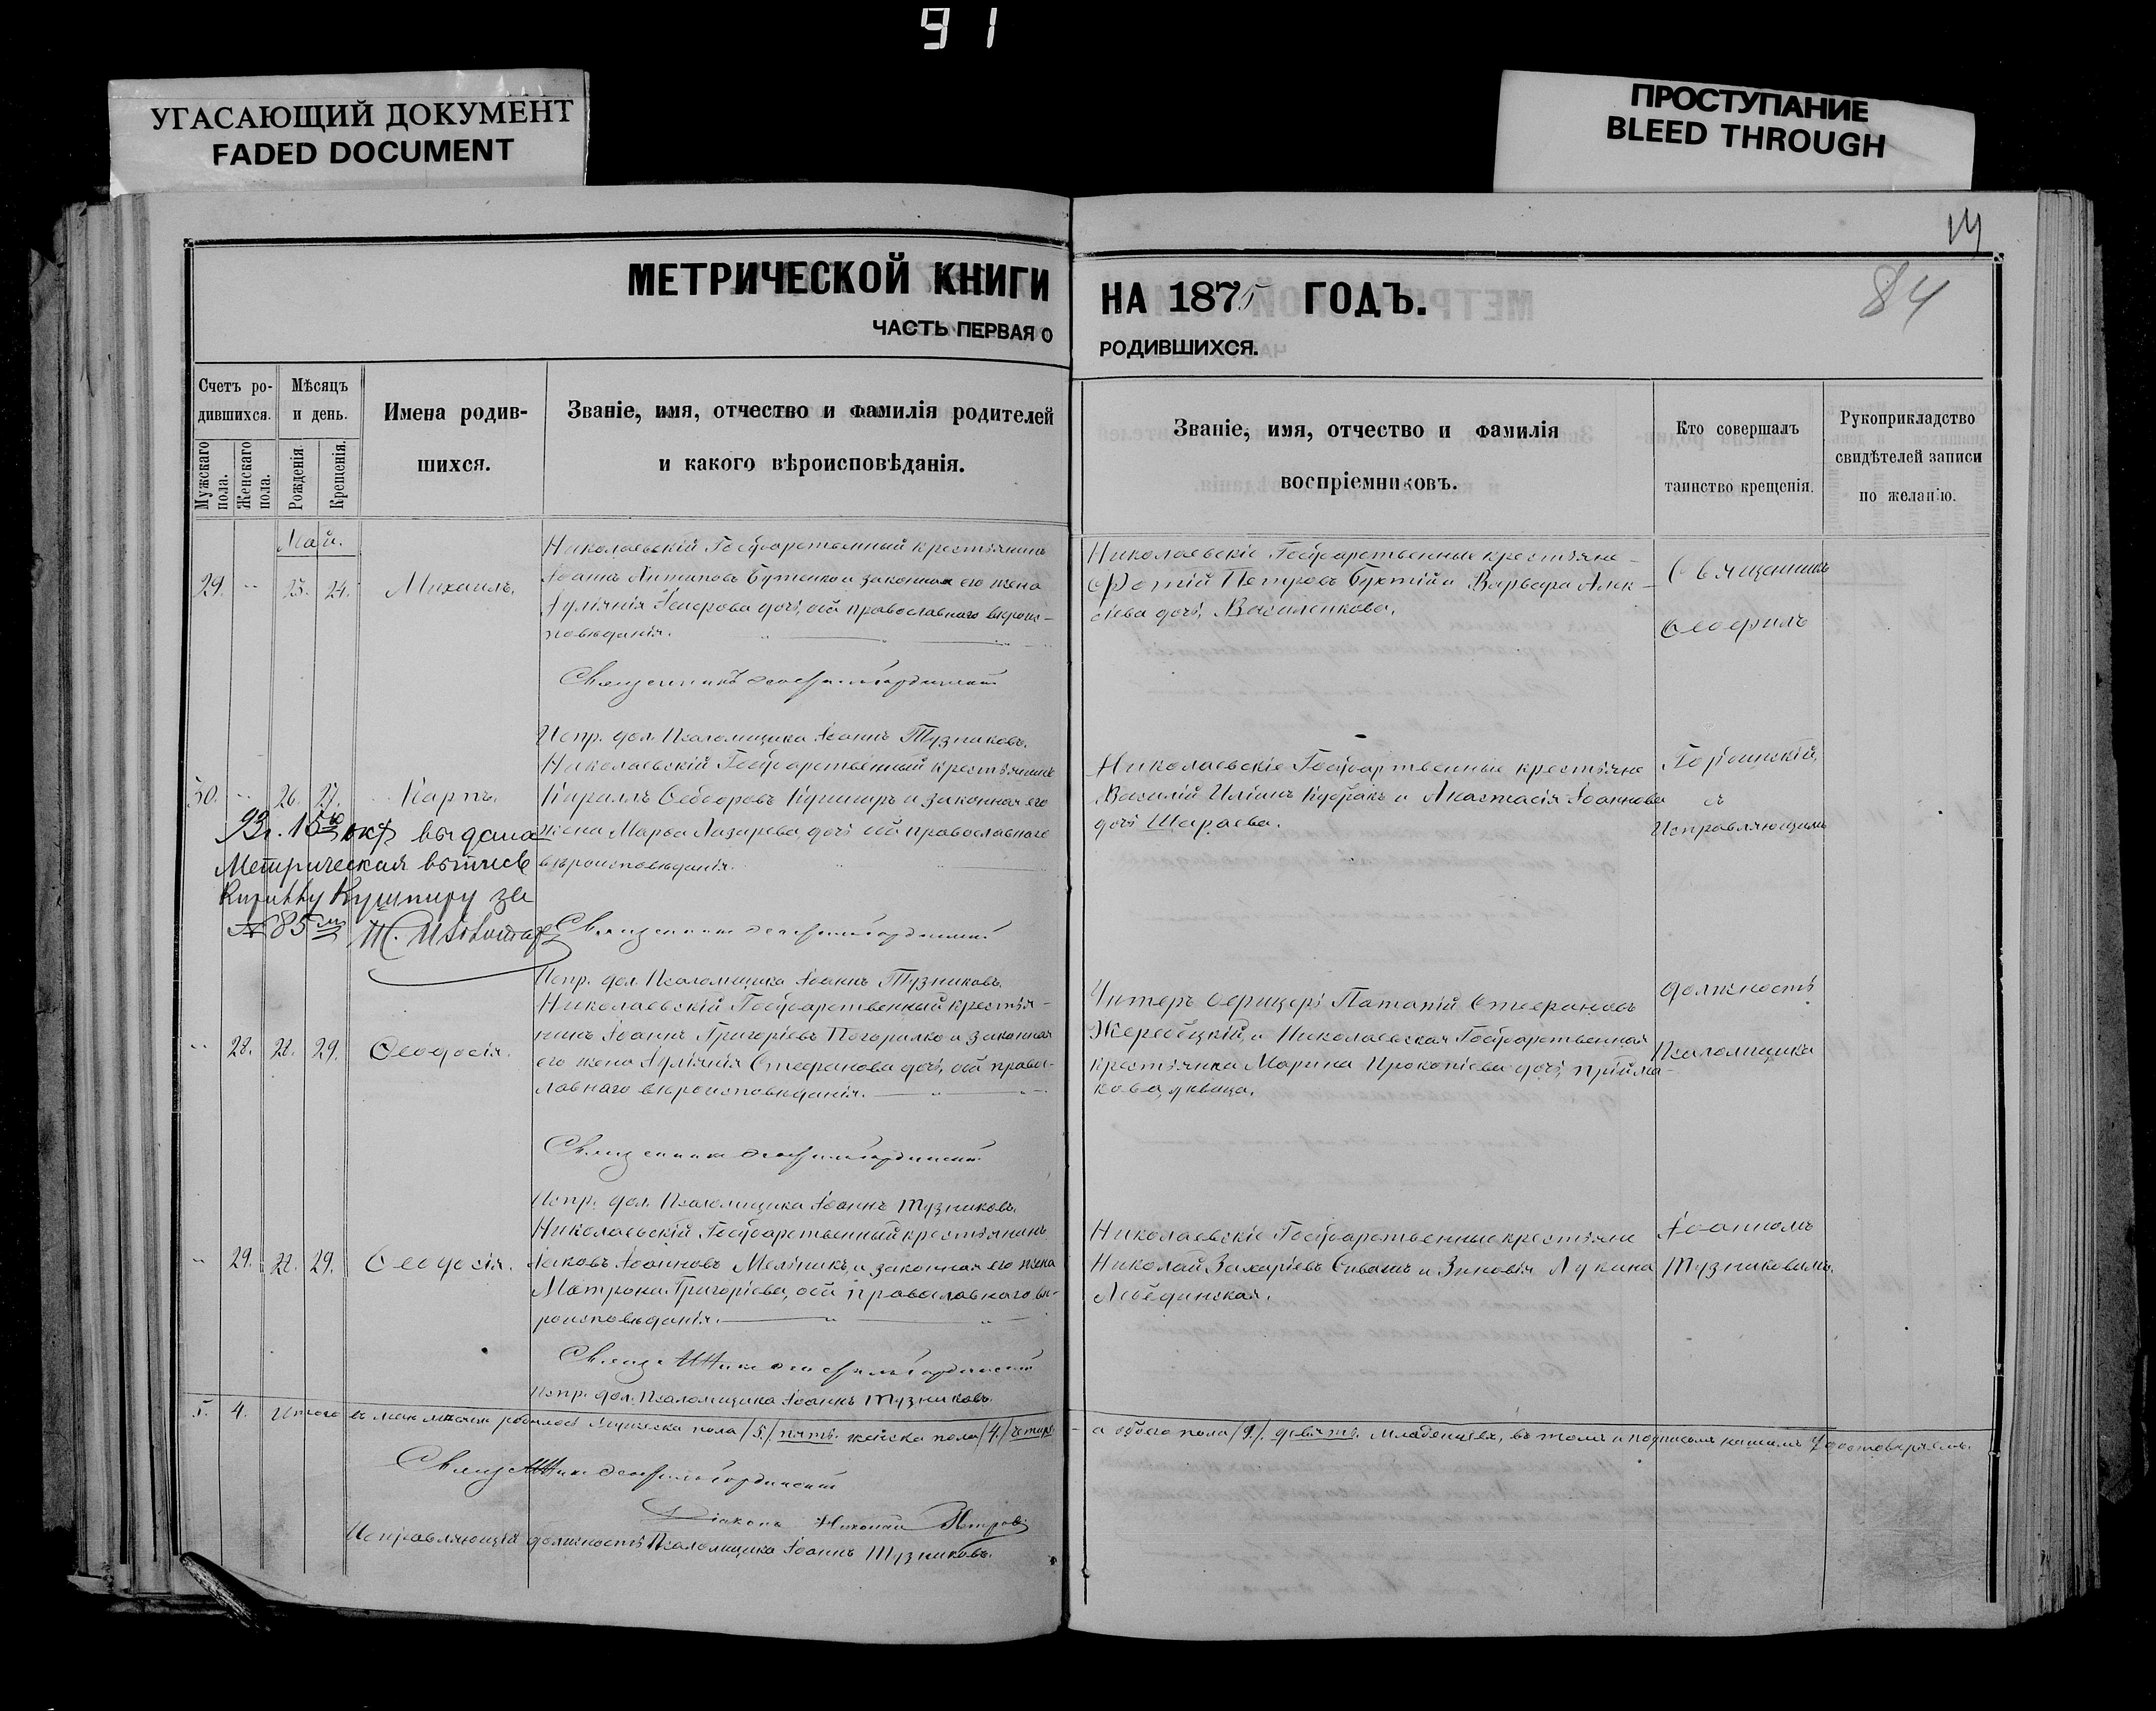 91
УГАСАЮЩИЙ ДОКУМЕНТ
FADED DOCUMENT
ПРОСТУПАНИЕ
BLEED THROUGH
14
84
МЕТРИЧЕСКОЙ КНИГИ
НА 1875 ГОДЪ.
ЧАСТЬ ПЕРВАЯ О
РОДИВШИХСЯ.
Счетъ ро-
дившихся.
Мужскаго пола.
Женскаго пола.
Мѣсяцъ
и день.
Рожденія.
Крещенія.
Имена родив-
шихся.
Званіе, имя, отчество и фамилія родителей
и какого вѣроисповѣданія.
Званіе, имя, отчество и фамилія
воспріемниковъ.
Кто совершалъ
таинство крещенія.
Рукоприкладство
свидѣтелей записи
по желанію.
Май.
29. 23. 24. Михаилъ.
Николаевскій Государственный крестьянинъ
Іоаннъ Антиповъ Бутенко и законная его жена
Іуліянія дочь, оба православнаго вѣроис-
повѣданія.
Николаевскіе Государственные крестьяне
Фотій Петровъ Бухтій и Варвара Алек-
сѣева дочь, Василенкова.
Священникъ
Ѳеофилъ
Горdинскій,
съ
Исправляющимъ
должность
Псаломщика
Іоанномъ
Тузниковымъ.
Священникъ Ѳеофилъ
Испр. дол. Псаломщика Іоаннъ Тузниковъ.
30. 26. 27. Карпъ.
Николаевскій Государственный крестьянинъ
Кириллъ Ѳеодоровъ Кушниръ и законная его
жена Марѳа Лазарева дочь оба православнаго
вѣроисповѣданія.
Николаевскіе Государственные крестьяне
Василій Иліинъ Кубракъ и Анастасія Іоаннова
дочь Шараева.
93 г. 15 окт выдана
Метрическая выпись
Кириллу Кушниру за
№ 85
Священникъ Ѳеофилъ
Испр. дол. Псаломщика Іоаннъ Тузниковъ.
28. 28. 29. Ѳеодосія.
Николаевскій Государственный крестья-
нинъ Іоаннъ Григоріевъ Погорилко и законная
его жена Іуліянія Стефанова дочь, оба право-
лавнаго вѣроисповѣданія.
Унтеръ Офицеръ Патапій Стефановъ
Жеребецкій, и Николаевская Государственная
крестьянка Марина Прокопіева дочь, Прийма-
кова дѣвица.
Священникъ Ѳеофилъ
Испр. дол. Псаломщика Іоаннъ Тузниковъ.
29. 28. 29. Ѳеодосія.
Николаевскій Государственный крестьянинъ
Іаковъ Іоанновъ Мельникъ, и законная его жена
Матрона Григоріева, оба православнаго вѣ-
роисповѣданія.
Николаевскіе Государственные крестьяне
Николай Захаріевъ Сивашъ и Зиновія Лукина
Лебединская.
Священникъ Ѳеофилъ
Испр. дол. Псаломщика Іоаннъ Тузниковъ.
5. 4. Итого въ мѣсяцѣ родилось Мужеска пола /5./ пять. женска пола /4./ четыре
а обоего пола /9./ девять. Младенцевъ, въ томъ и подписомъ нашимъ удостовѣряемъ.
Священникъ Ѳеофилъ
Діаконъ Николай Петровъ
Исправляющій должность Псаломщика Іоаннъ Тузниковъ.